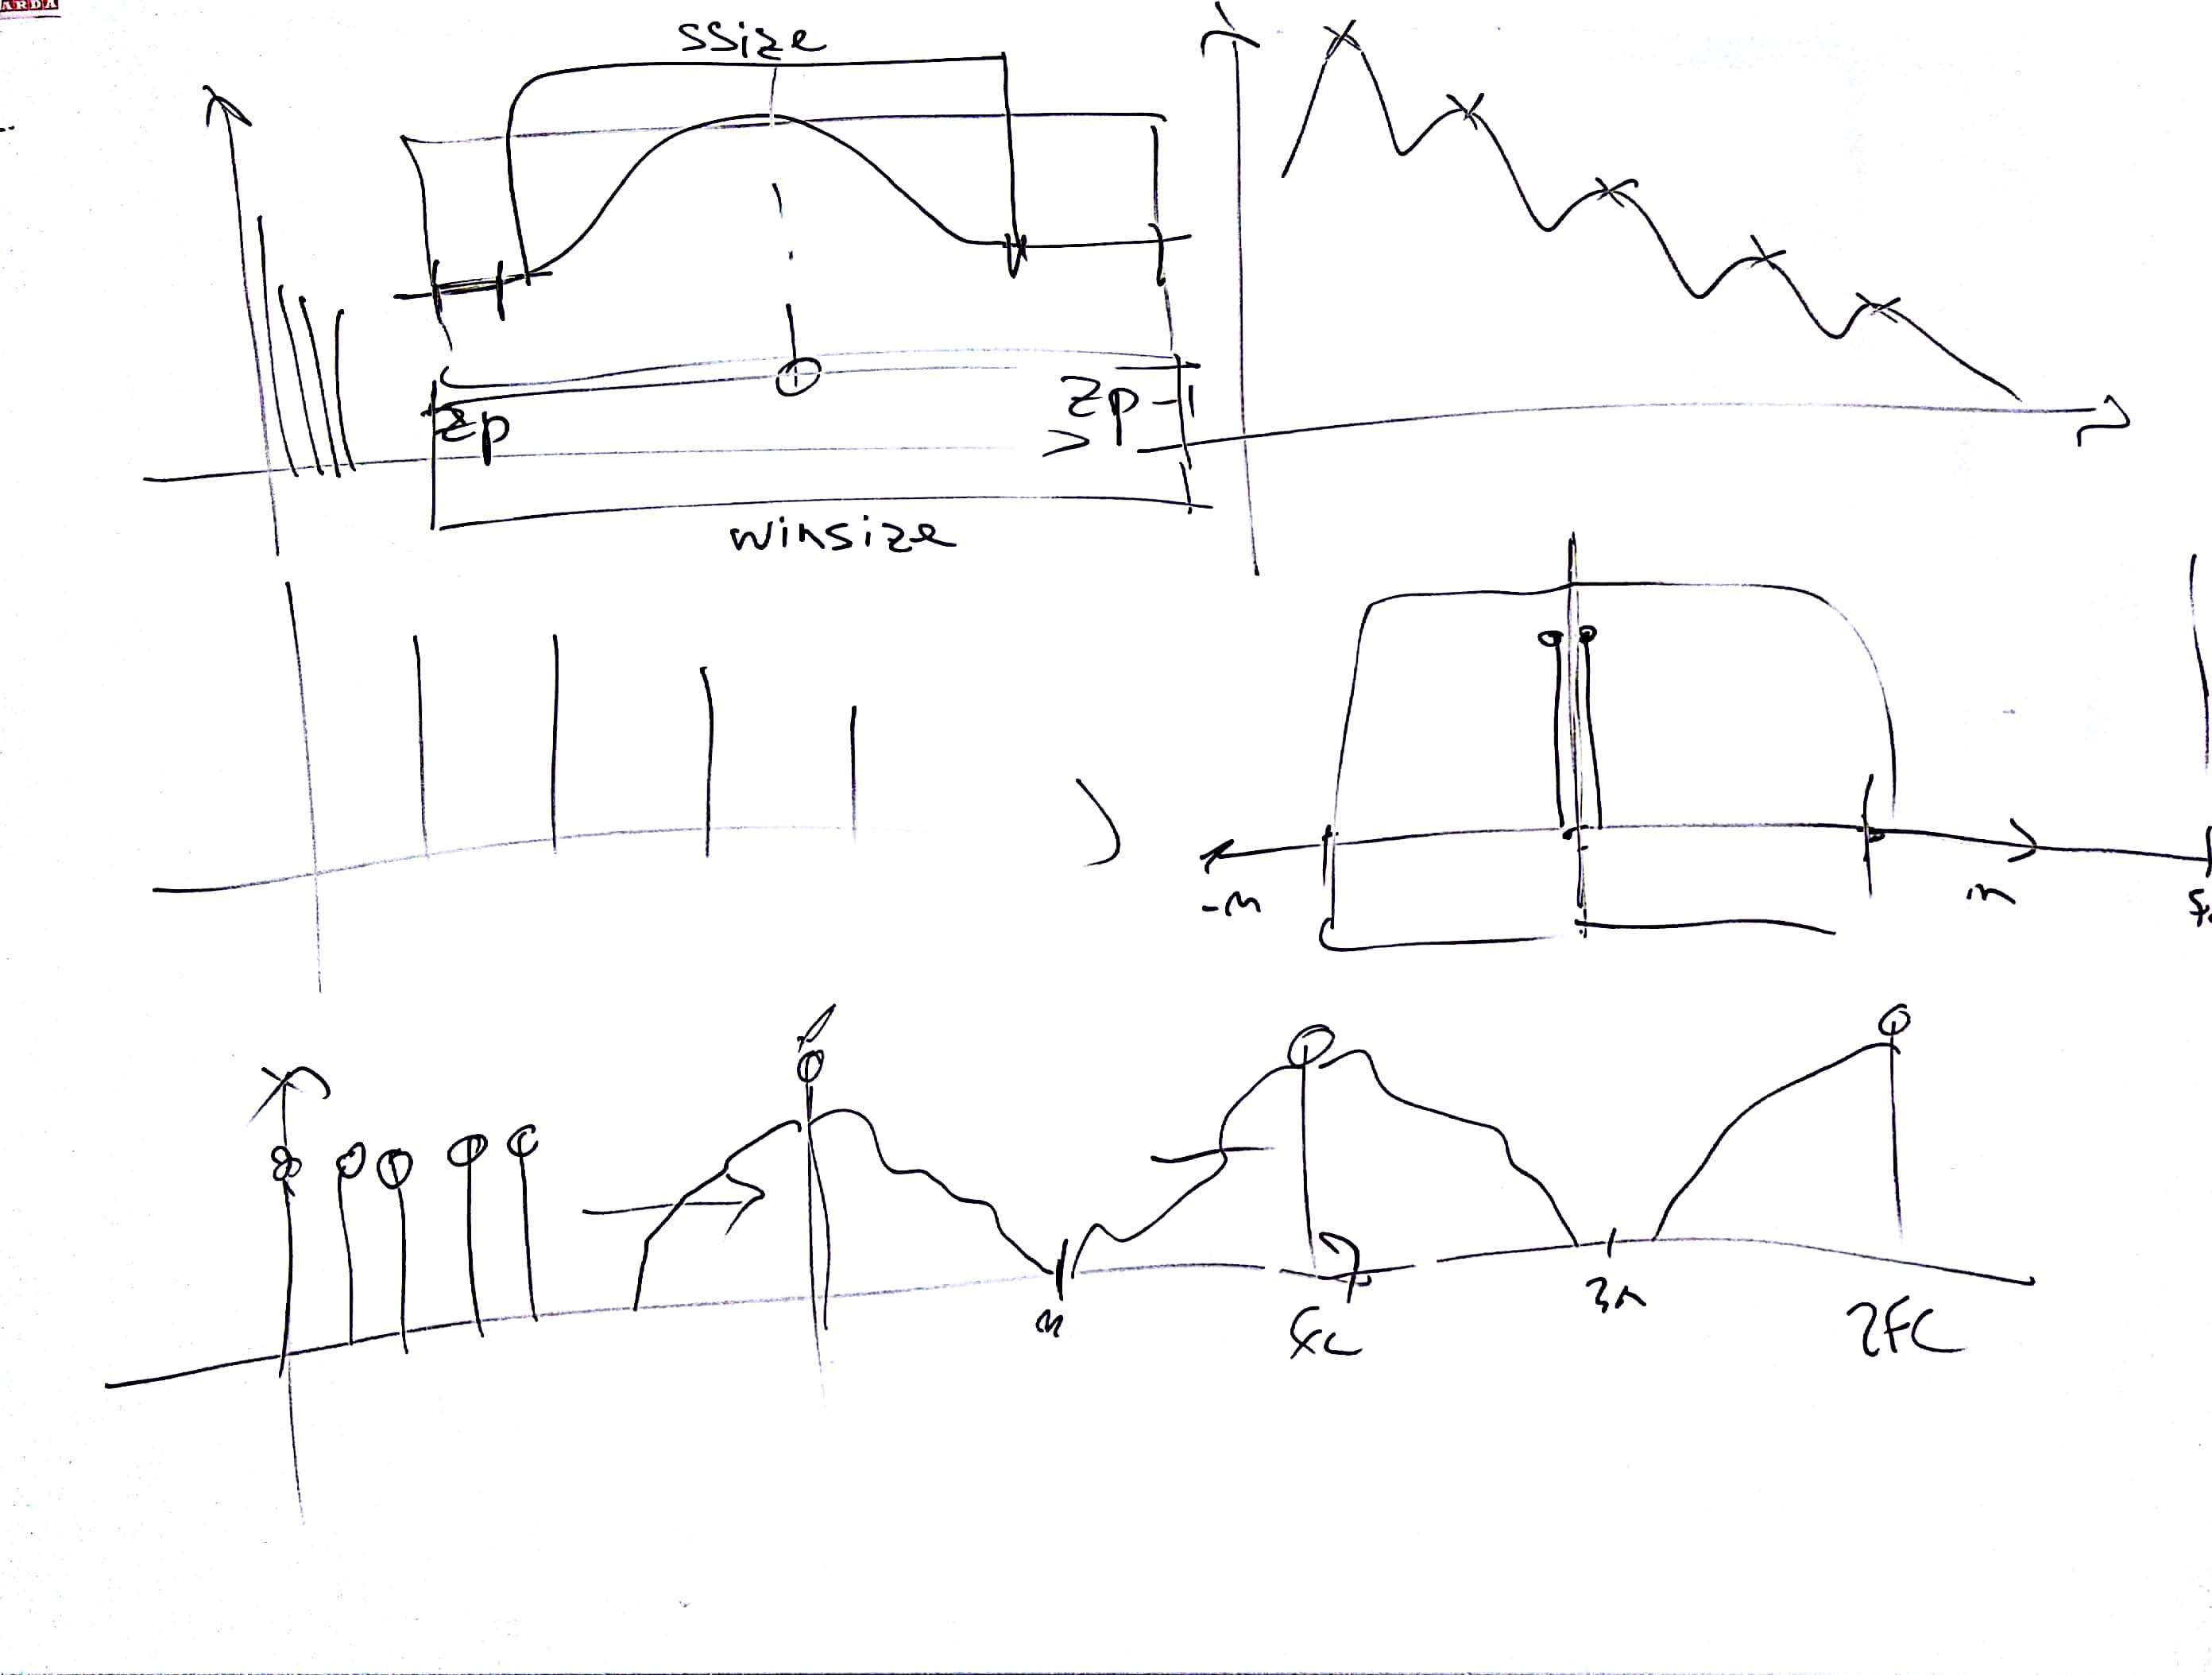 ARDA
ssize
zp
zp-1
winsize
-n
n
n
fc
3n
2FC